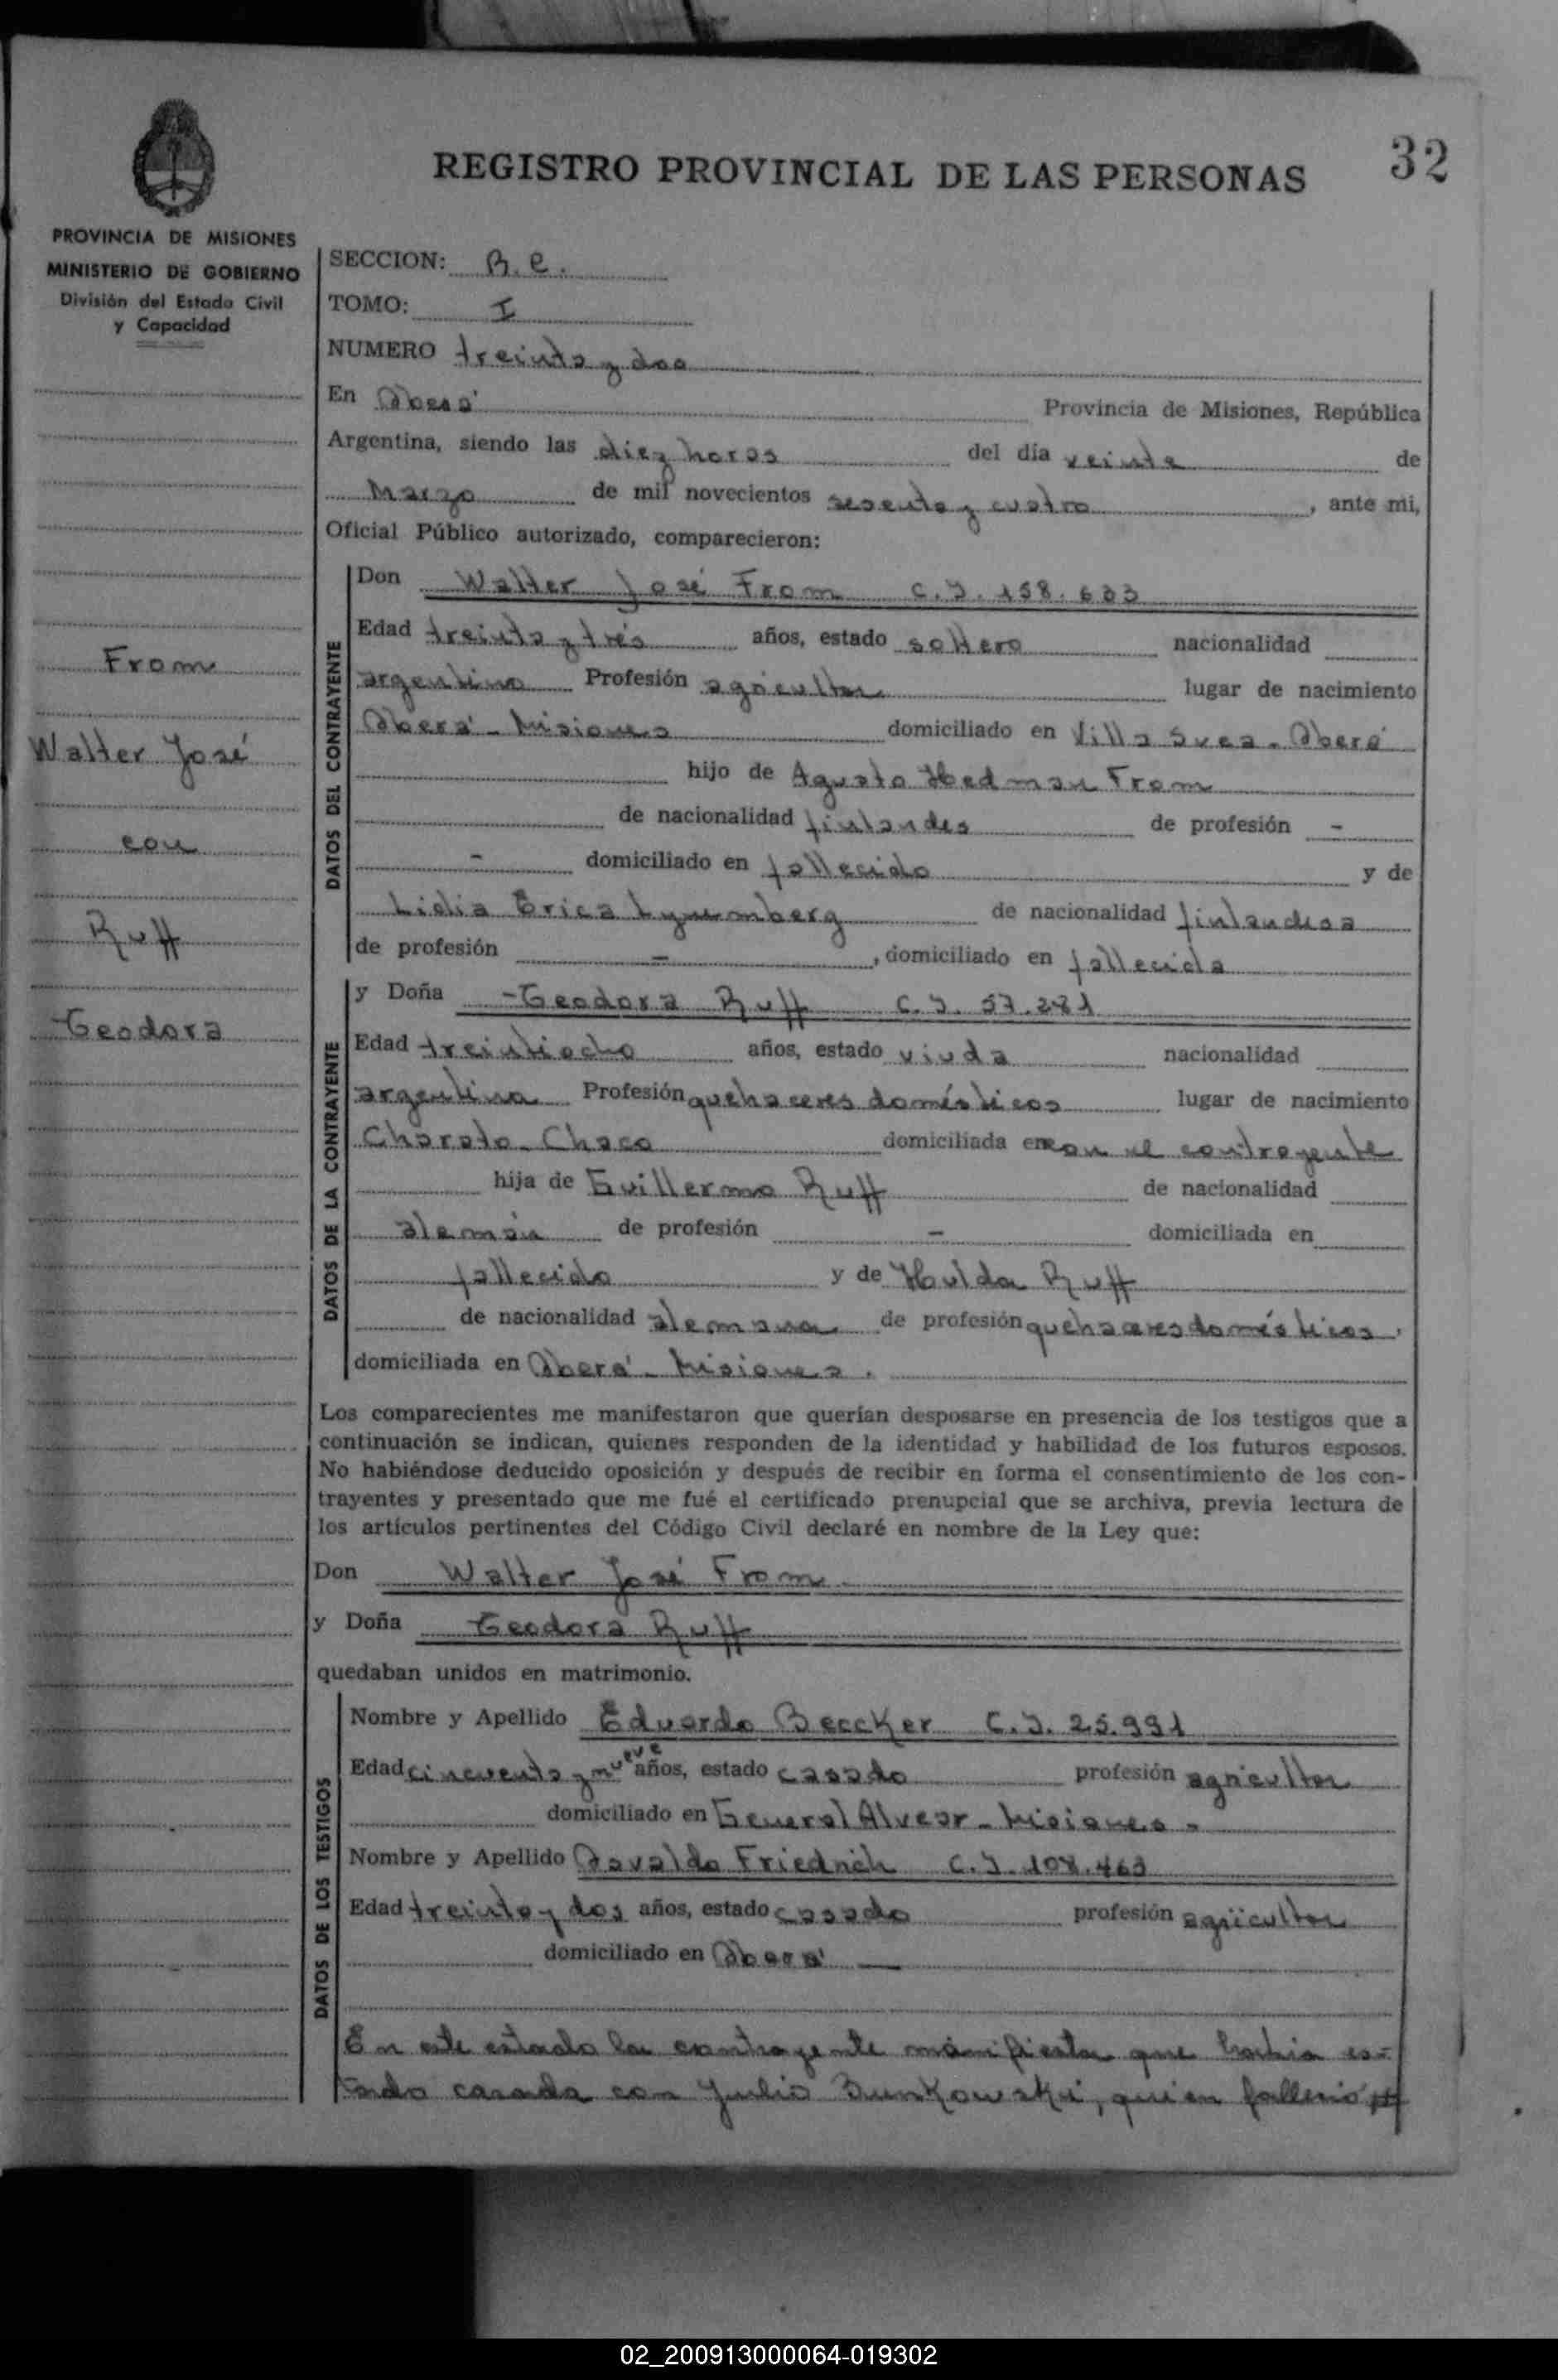 32
REGISTRO PROVINCIAL DE LAS PERSONAS
PROVINCIA DE MISIONES
MINISTERIO DE GOBIERNO
División del Estado Civil
y Capacidad
From
Walter José
con
Ruff
Teodora
SECCION: B. C.
TOMO: I
NUMERO treinta y dos
En Oberá Provincia de Misiones, República
Argentina, siendo las diez horas del día veinte de
Marzo de mil novecientos sesenta y cuatro, ante mi,
Oficial Público autorizado, comparecieron:
DATOS DEL CONTRAYENTE
Don Walter José From C.I. 158.633
Edad treinta y trés años, estado soltero nacionalidad
argentino Profesión agricultor lugar de nacimiento
Oberá - Misiones domiciliado en Villa Svea - Oberá
hijo de Agusto Hedman From
de nacionalidad finlandes de profesión -
- domiciliado en fallecido y de
Lidia Erica de nacionalidad finlandesa
de profesión -, domiciliado en fallecida
DATOS DE LA CONTRAYENTE
y Doña Teodora Ruff C.I. 57.281
Edad treintiocho años, estado viuda nacionalidad
argentina Profesión quehaceres domésticos lugar de nacimiento
Charata - Chaco domiciliada en con el contrayente
hija de Guillermo Ruff de nacionalidad
alemán de profesión - domiciliada en
fallecido y de Hulda Ruff
de nacionalidad alemana de profesión quehaceres domésticos,
domiciliada en Oberá - Misiones.
Los comparecientes me manifestaron que querían desposarse en presencia de los testigos que a
continuación se indican, quienes responden de la identidad y habilidad de los futuros esposos.
No habiéndose deducido oposición y después de recibir en forma el consentimiento de los con-
trayentes y presentado que me fué el certificado prenupcial que se archiva, previa lectura de
los artículos pertinentes del Código Civil declaré en nombre de la Ley que:
Don Walter José From
y Doña Teodora Ruff
quedaban unidos en matrimonio.
DATOS DE LOS TESTIGOS
Nombre y Apellido Eduardo Beccker C.I. 25.991
Edad cincuenta y nueve años, estado casado profesión agricultor
domiciliado en General Alvear - Misiones -
Nombre y Apellido Osvaldo Friedrich C.I. 108.463
Edad treinta y dos años, estado casado profesión agricultor
domiciliado en Oberá
En este estado la contrayente manifiesta que habia es-
tado casada con Julio Bunkowski, quien falleció
02_200913000064-019302